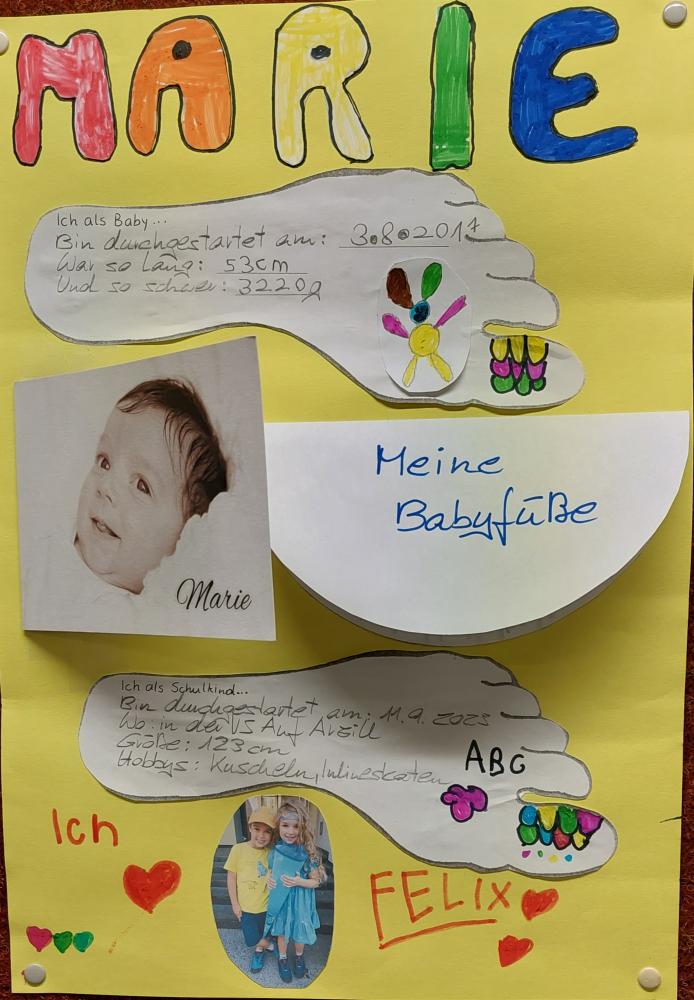 MARIE
Ich als Baby...
Bin durchgestartet am: 3.8.2017
War so lang: 53cm
Und so schwer: 3220g
Meine
Babyfüße
Marie
Ich als Schulkind...
Bin durchgestartet am: 11.9.2023
Wo: in der VS Auf Arzill
Größe: 123cm
Hobbys: Kuscheln, Inlineskaten
ABC
Ich
FELIX